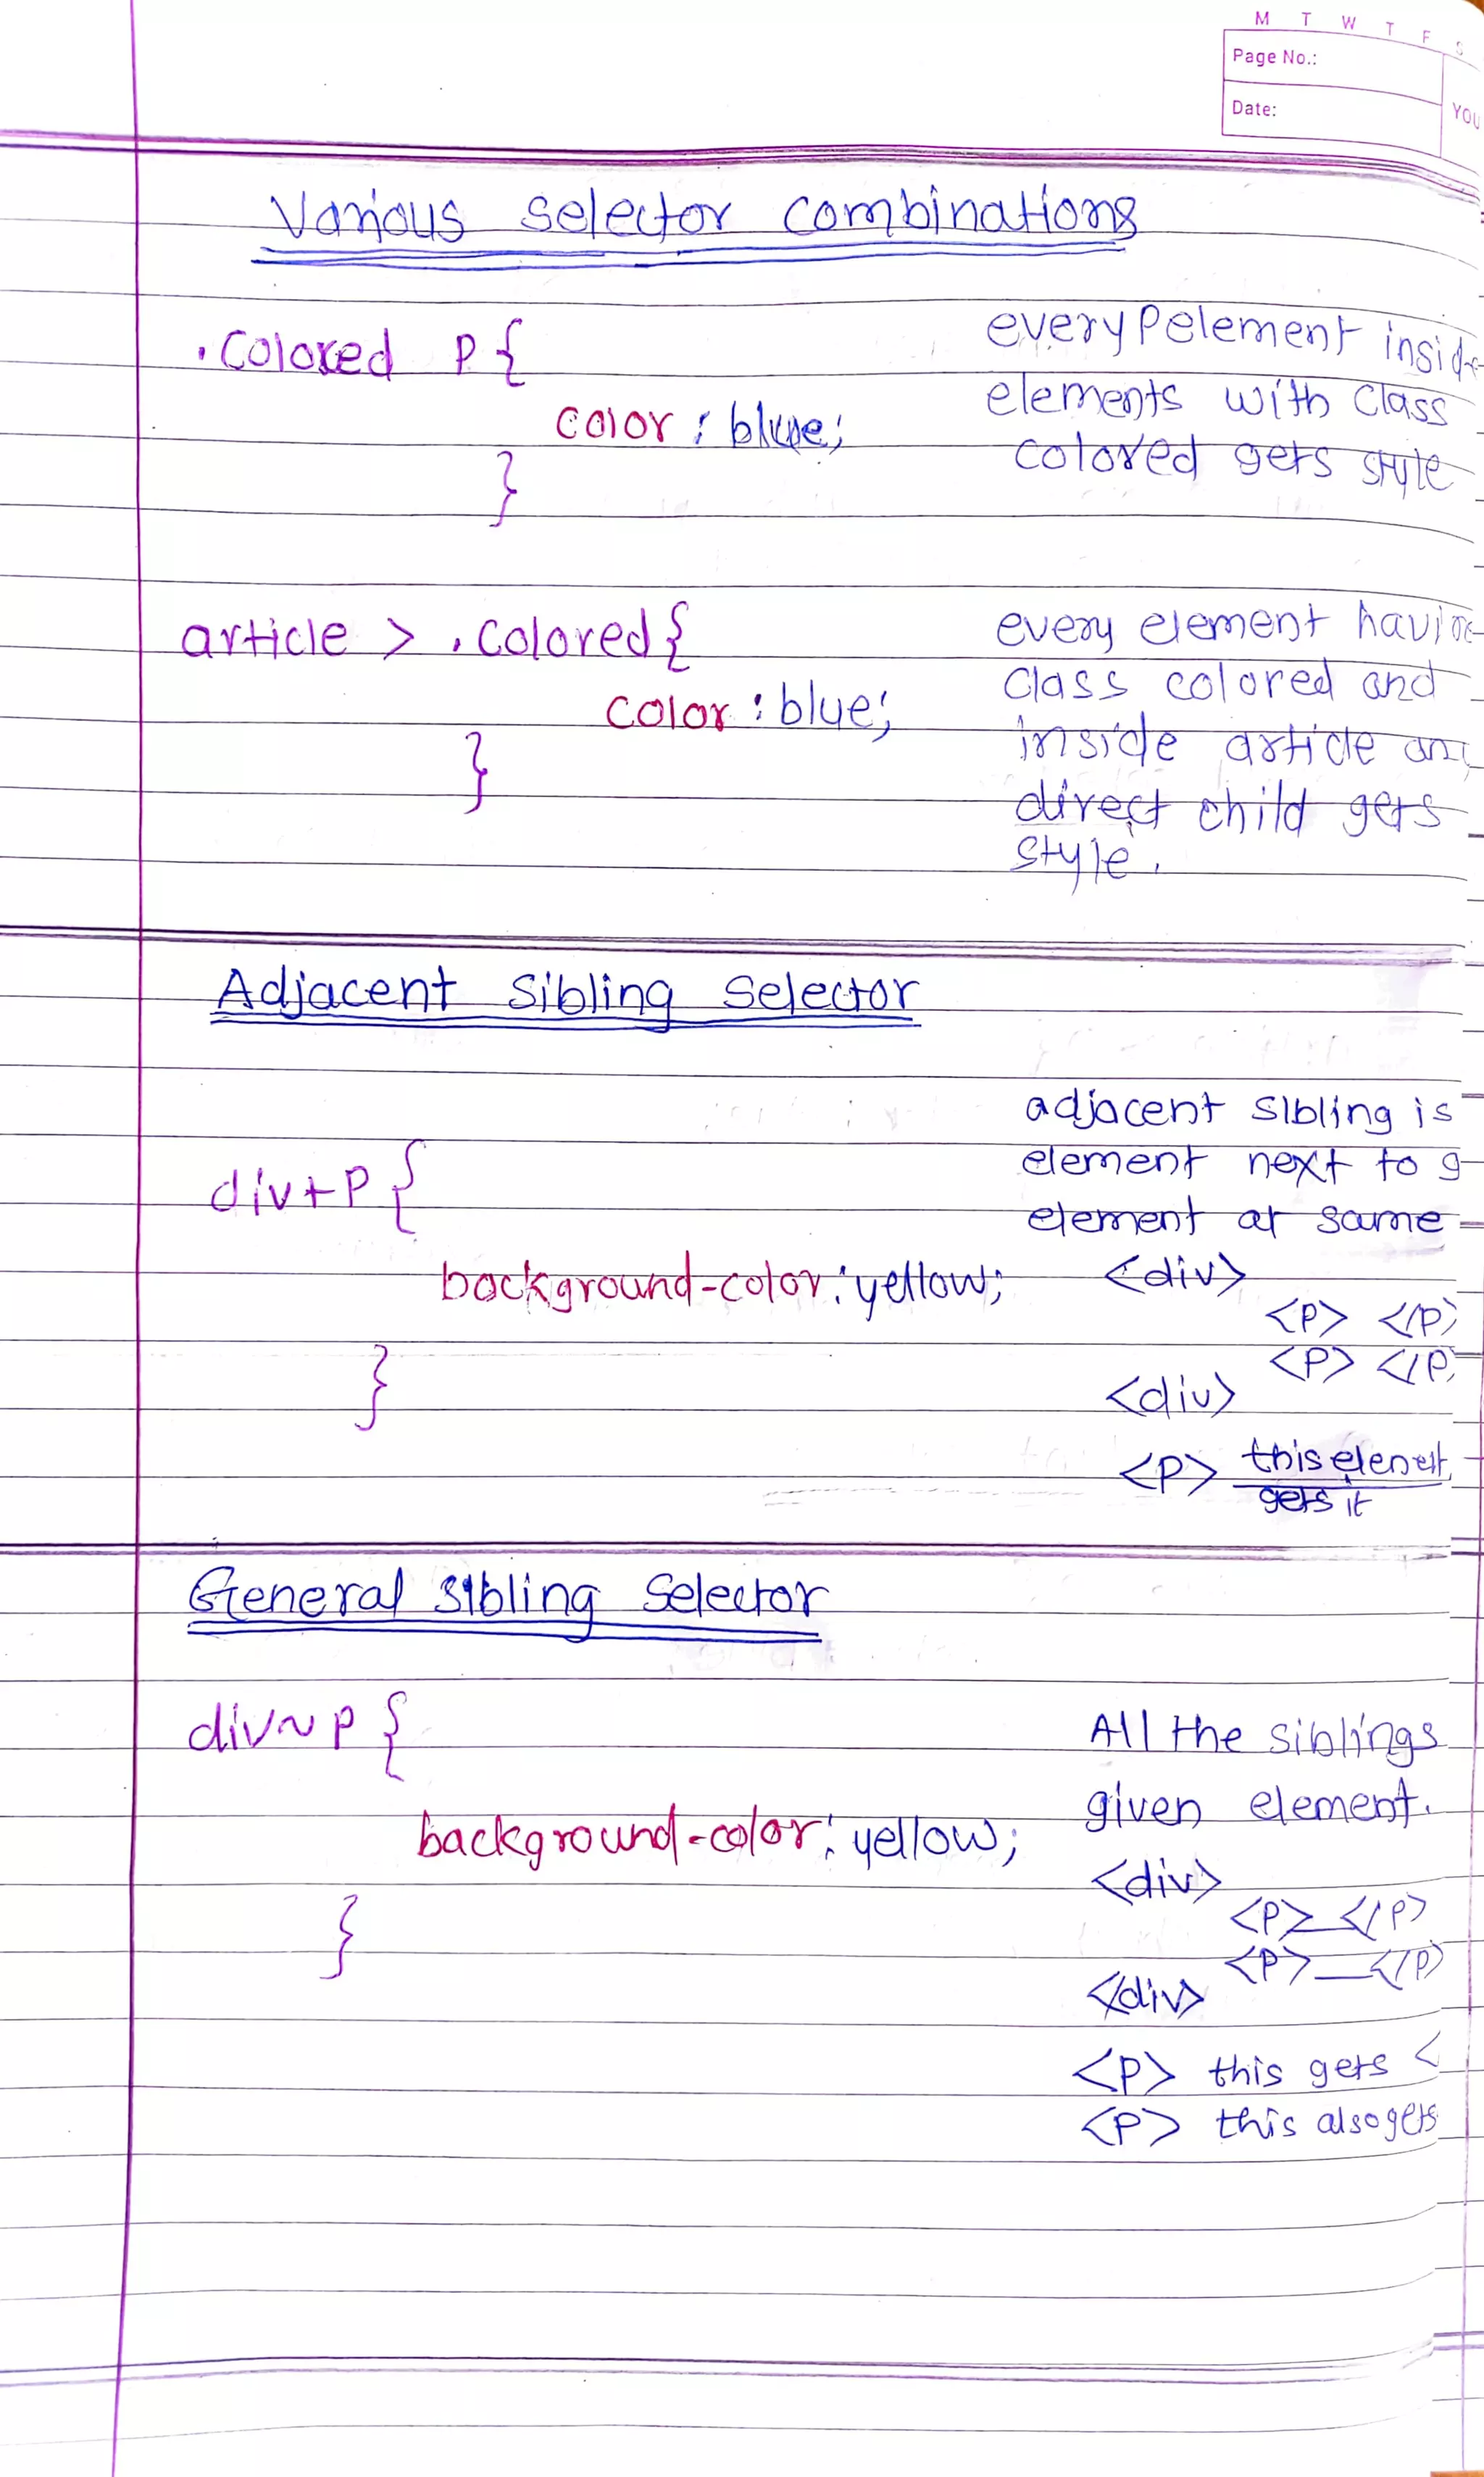 M T W T F S
Page No.:
Date:
YOU
Various selector combinations
.colored p{
color : blue;
}
every P element inside
elements with class
colored gets style
article > .colored{
color : blue;
}
every element having
class colored and
inside article
direct child gets
style.
Adjacent sibling selector
div+p{
background-color: yellow;
}
adjacent sibling is
element next to g
element at same
<div>
<p> </p>
<p> </p
<div>
<p> this element
gets it
General sibling selector
div~p{
background-color: yellow;
}
All the siblings
given element.
<div>
<p> </p>
<p> </p>
</div>
<p> this gets <
<p> this also gets